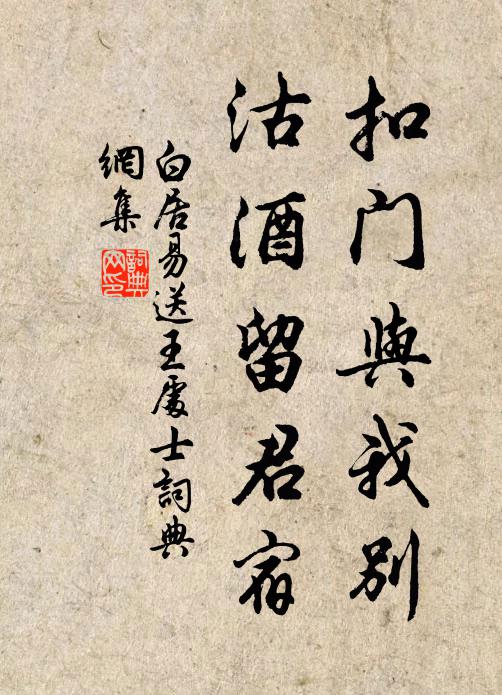 扣门與我别
沽酒留君宿
白居易送王處士詞典
網集
詞典
网印